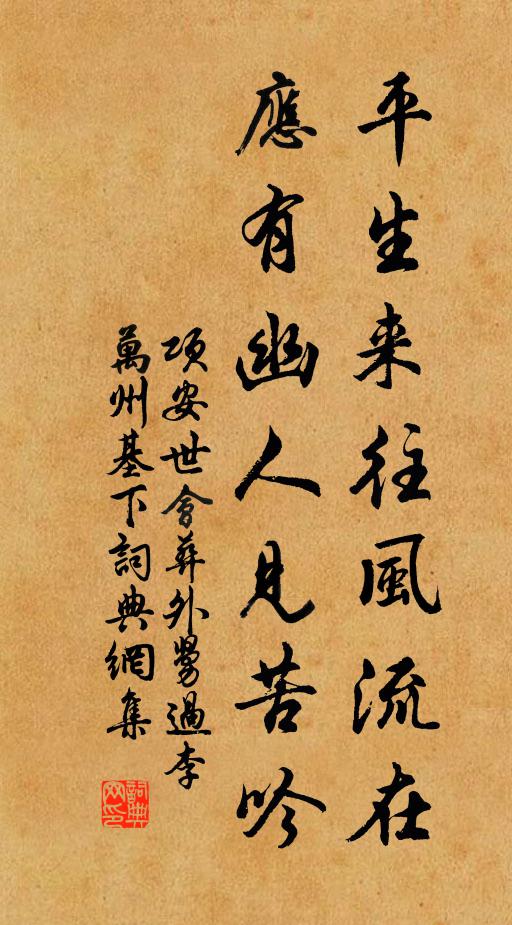 平生来往風流在
應有幽人見苦吟
項安世會葬外舅過李
萬州基下詞典網集
詞典網印